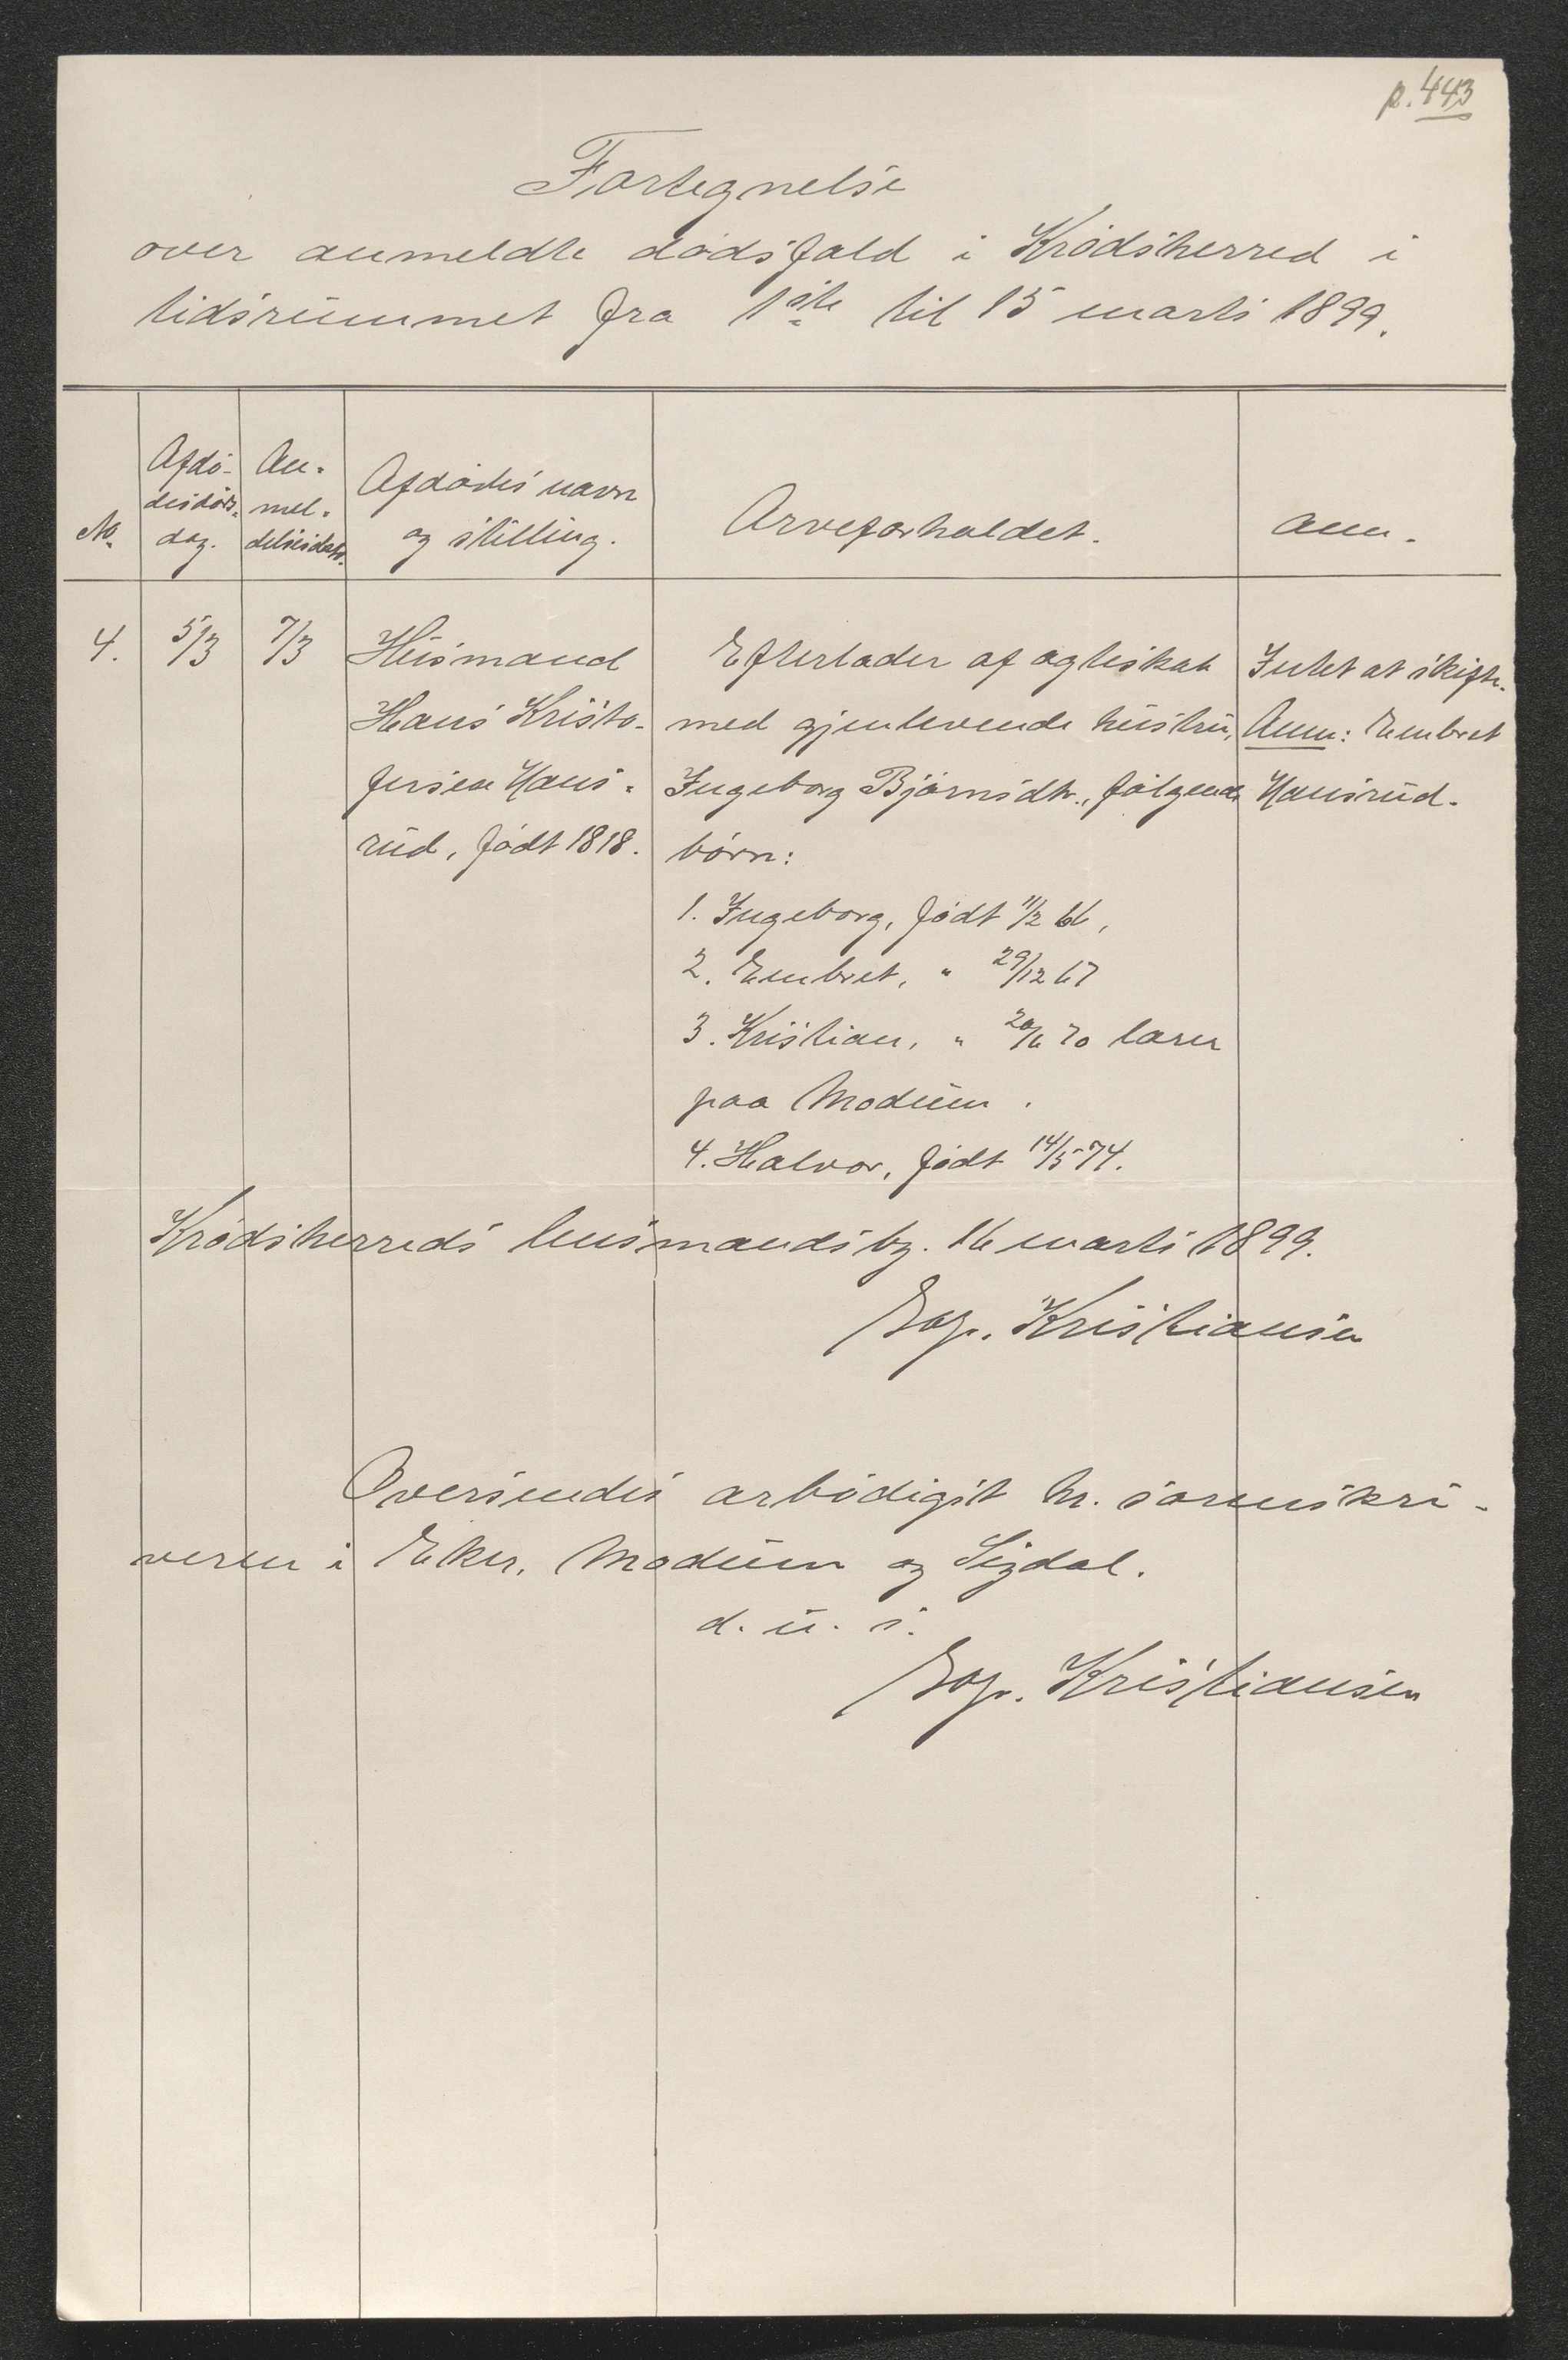 p. 443
Fortegnelse
over anmeldte dødsfald i Krødsherred i
tidsrummet fra 1ste til 15 marts 1899.
No.
Afdødes døds-
dag.
An-
mel-
delsesdato.
Afdødes navn
og stilling.
Arveforholdet.
anm.
4.
5/3
7/3
Husmand
Hans Kristo-
fersen Hans-
rud, født 1818.
Efterlader af ægteskab
med gjenlevende hustru,
Ingeborg Bjørnsdtr., følgende
børn:
1. Ingeborg, født 11/2 66,
2. Embret, " 29/12 67
3. Kristian, " 20/6 70
paa Modum.
4. Halvor, født 14/5 74.
Intet at skifte.
Anm: Embret
Hansrud.
Krødsherreds lensmandsbg. 16 marts 1899.
Kristiansen
Oversendes ærbødigst hr. sorenskri-
veren i Eker, Modum og Sigdal.
d. u. s.
Kristiansen